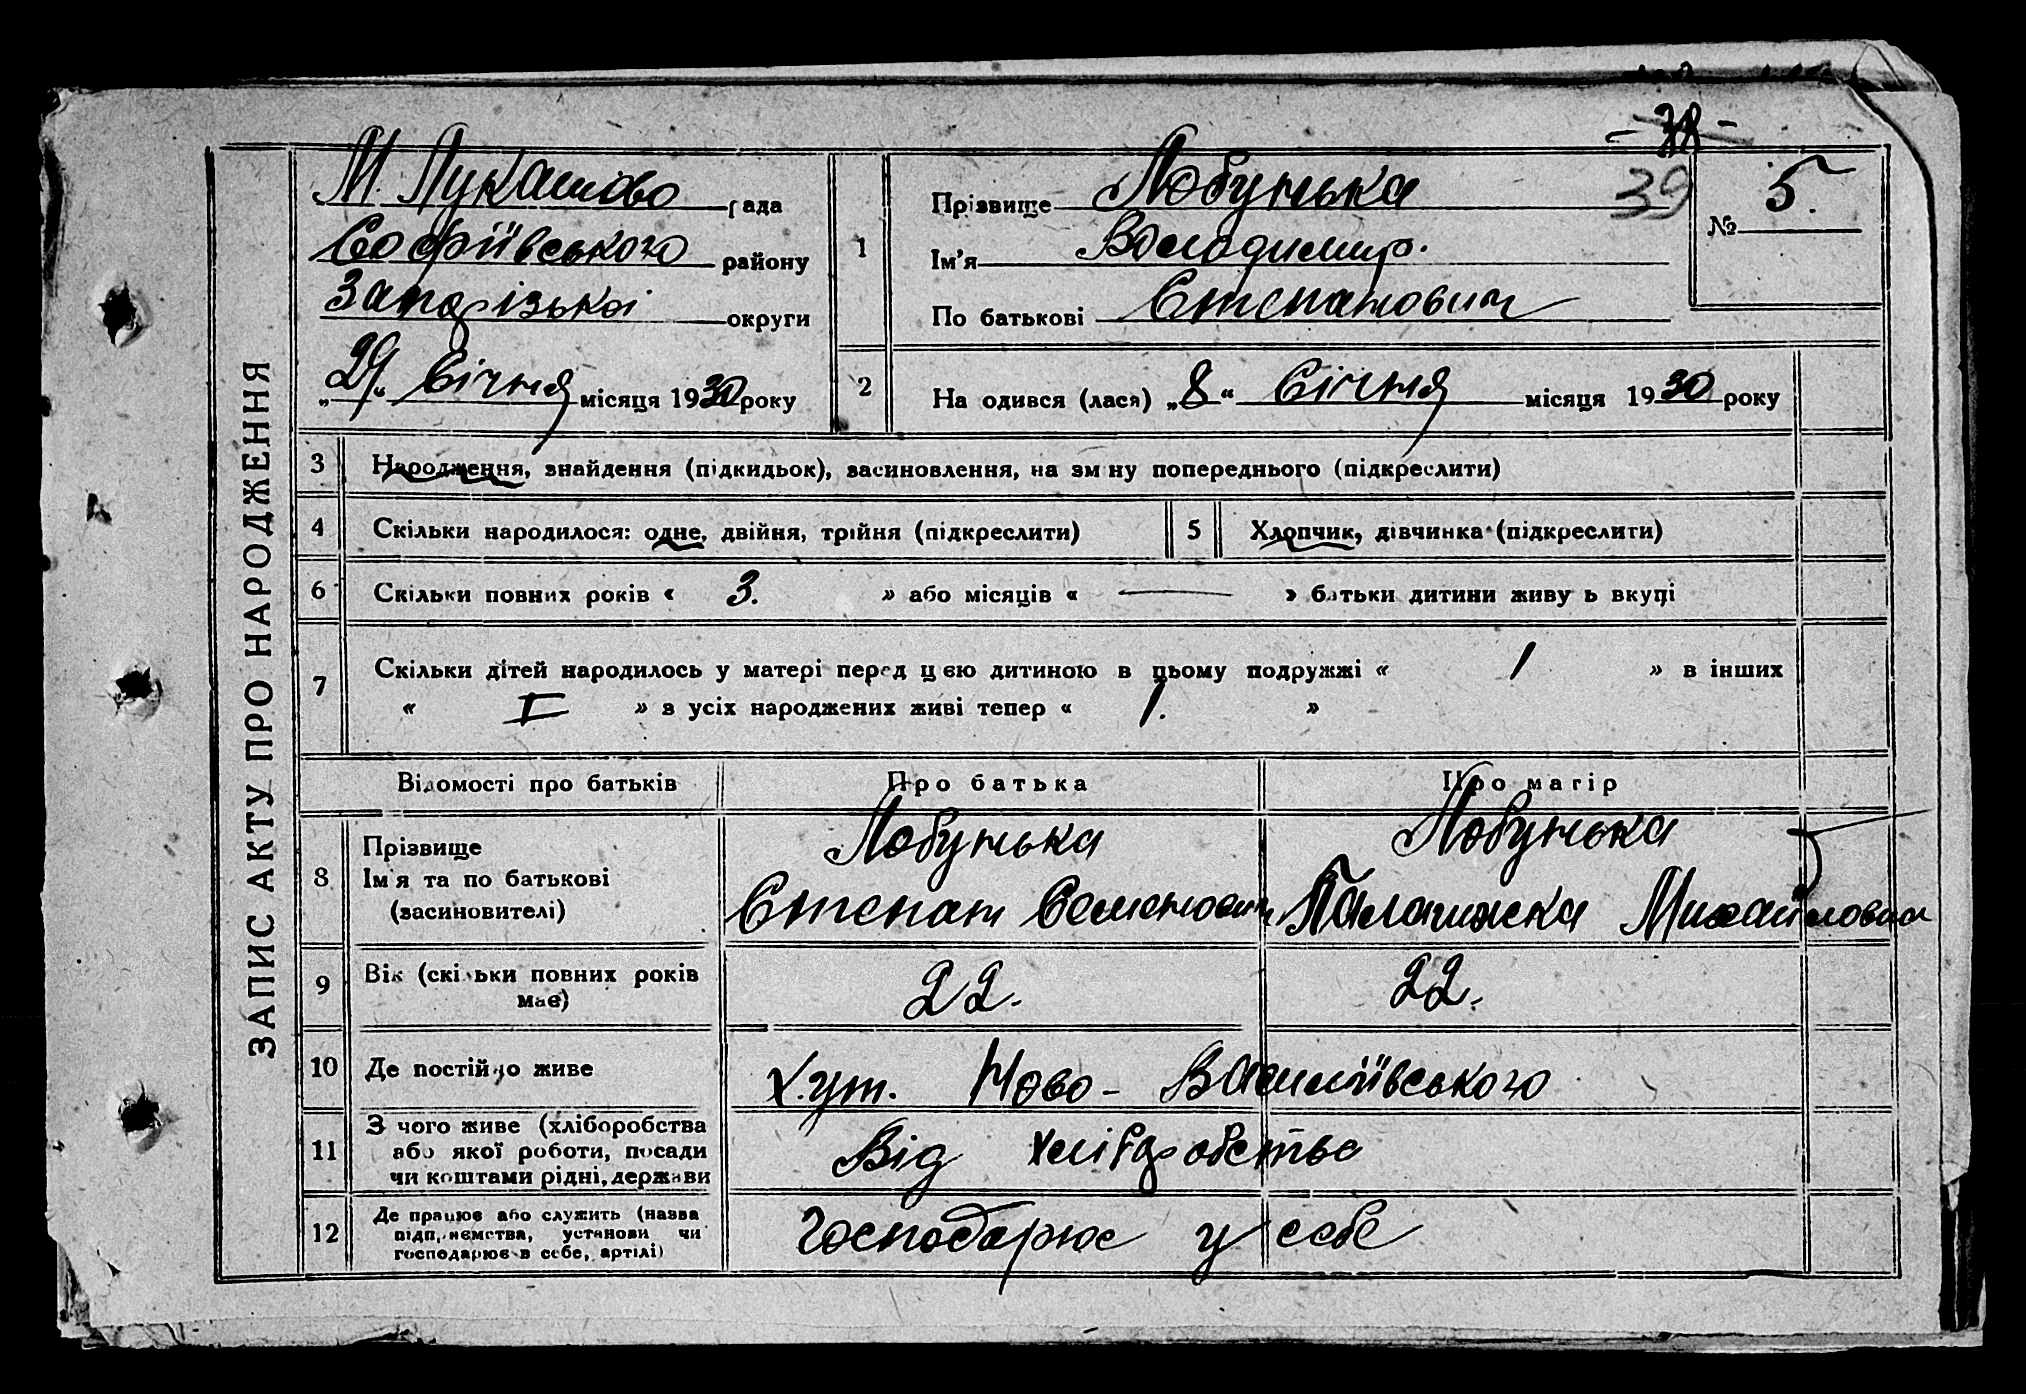 - 38 -
39
ЗАПИС АКТУ ПРО НАРОДЖЕННЯ
М. Лукашово рада
Софіївського району
Запорізької округи
„29“ Січня місяця 1930 року
1
Прізвище Лобунька
Ім'я Володимир.
По батькові Степанович
№ 5.
2
На одився (лася) „8“ Січня місяця 1930 року
3 Народження, знайдення (підкидьок), засиновлення, на зміну попереднього (підкреслити)
4 Скільки народилося: одне, двійня, трійня (підкреслити) 5 Хлопчик, дівчинка (підкреслити)
6 Скільки повних років « 3. » або місяців « — » батьки дитини живуть вкупі
7 Скільки дітей народилось у матері перед цією дитиною в цьому подружжі « 1 » в інших
« I » в усіх народжених живі тепер « 1. »
Відомості про батьків Про батька Про матір
8 Прізвище
Ім'я та по батькові
(засиновителі)
Лобунька
Степан Семенович
Лобунька
Палажка Михайловна
9 Вік (скільки повних років
має)
22. 22.
10 Де постійно живе Хут. Ново-Василівського
11 З чого живе (хліборобства
або якої роботи, посади
чи коштами рідні, держави
Від хліборобства
12 Де працює або служить (назва
підприємства, установи чи
господарює в себе, артілі)
Господарює у себе